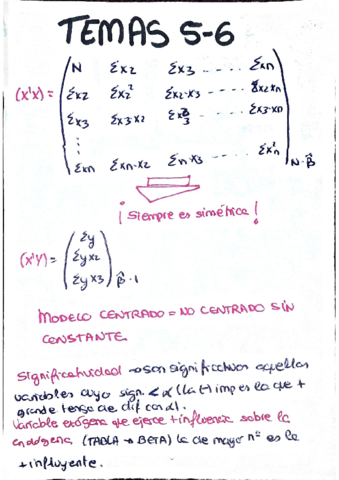 TEMAS 5-6
(X'X) = ( N Σx2 Σx3 ---- Σxn
Σx2 Σx2² Σx2·x3 ---- Σx2xn
Σx3 Σx3·x2 Σx3² ---- Σx3·xn
⋮
Σxn Σxn·x2 Σn·x3 ---- Σxn² ) N·β̂
¡Siempre es simétrica!
(X'Y) = ( Σy
Σyx2
Σyx3 ) β̂·1
MODELO CENTRADO = NO CENTRADO SIN
CONSTANTE.
Significatividad → son significativas aquellas
variables cuyo sign. < α (la t) imp es la que +
grande tenga de dif con α).
Variable exógena que ejerce + influencia sobre la
endógena (TABLA → BETA) la de mayor nº es la
+ influyente.